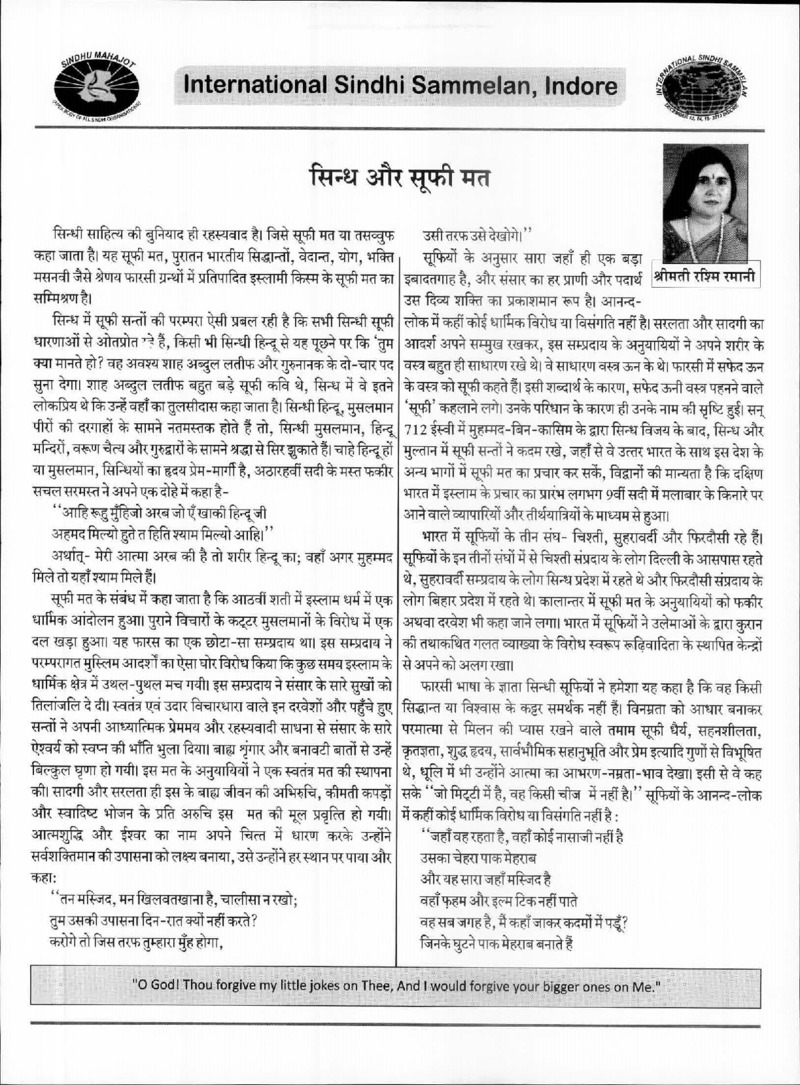 SINDHU MAHAJOT
International Sindhi Sammelan, Indore
INTERNATIONAL SINDHI SAMMELAN
सिन्ध और सूफी मत
श्रीमती रश्मि रमानी
सिन्धी साहित्य की बुनियाद ही रहस्यवाद है। जिसे सूफी मत या तसव्वुफ
कहा जाता है। यह सूफी मत, पुरातन भारतीय सिद्धान्तों, वेदान्त, योग, भक्ति
मसनवी जैसे श्रेणय फारसी ग्रन्थों में प्रतिपादित इस्लामी किस्म के सूफी मत का
सम्मिश्रण है।
सिन्ध में सूफी सन्तों की परम्परा ऐसी प्रबल रही है कि सभी सिन्धी सूफी
धारणाओं से ओतप्रोत रहे हैं, किसी भी सिन्धी हिन्दू से यह पूछने पर कि ‘तुम
क्या मानते हो? वह अवश्य शाह अब्दुल लतीफ और गुरुनानक के दो-चार पद
सुना देगा। शाह अब्दुल लतीफ बहुत बड़े सूफी कवि थे, सिन्ध में वे इतने
लोकप्रिय थे कि उन्हें वहाँ का तुलसीदास कहा जाता है। सिन्धी हिन्दू, मुसलमान
पीरों की दरगाहों के सामने नतमस्तक होते हैं तो, सिन्धी मुसलमान, हिन्दू
मन्दिरों, वरूण चैत्य और गुरुद्वारों के सामने श्रद्धा से सिर झुकाते हैं। चाहे हिन्दू हों
या मुसलमान, सिन्धियों का हृदय प्रेम-मार्गी है, अठारहवीं सदी के मस्त फकीर
सचल सरमस्त ने अपने एक दोहे में कहा है-
‘‘आहि रूहु मुँहिजो अरब जो एँ खाकी हिन्दू जी
अहमद मिल्यो हुते त हिति श्याम मिल्यो आहि।’’
अर्थात्- मेरी आत्मा अरब की है तो शरीर हिन्दू का; वहाँ अगर मुहम्मद
मिले तो यहाँ श्याम मिले हैं।
सूफी मत के संबंध में कहा जाता है कि आठवीं शती में इस्लाम धर्म में एक
धार्मिक आंदोलन हुआ। पुराने विचारों के कट्टर मुसलमानों के विरोध में एक
दल खड़ा हुआ। यह फारस का एक छोटा-सा सम्प्रदाय था। इस सम्प्रदाय ने
परम्परागत मुस्लिम आदर्शों का ऐसा घोर विरोध किया कि कुछ समय इस्लाम के
धार्मिक क्षेत्र में उथल-पुथल मच गयी। इस सम्प्रदाय ने संसार के सारे सुखों को
तिलांजलि दे दी। स्वतंत्र एवं उदार विचारधारा वाले इन दरवेशों और पहुँचे हुए
सन्तों ने अपनी आध्यात्मिक प्रेममय और रहस्यवादी साधना से संसार के सारे
ऐश्वर्य को स्वप्न की भाँति भुला दिया। बाह्य शृंगार और बनावटी बातों से उन्हें
बिल्कुल घृणा हो गयी। इस मत के अनुयायियों ने एक स्वतंत्र मत की स्थापना
की। सादगी और सरलता ही इस के बाह्य जीवन की अभिरुचि, कीमती कपड़ों
और स्वादिष्ट भोजन के प्रति अरुचि इस मत की मूल प्रवृत्ति हो गयी।
आत्मशुद्धि और ईश्वर का नाम अपने चित्त में धारण करके उन्होंने
सर्वशक्तिमान की उपासना को लक्ष्य बनाया, उसे उन्होंने हर स्थान पर पाया और
कहा:
‘‘तन मस्जिद, मन खिलवतखाना है, चालीसा न रखो;
तुम उसकी उपासना दिन-रात क्यों नहीं करते?
करोगे तो जिस तरफ तुम्हारा मुँह होगा,
उसी तरफ उसे देखोगे।’’
सूफियों के अनुसार सारा जहाँ ही एक बड़ा
इबादतगाह है, और संसार का हर प्राणी और पदार्थ
उस दिव्य शक्ति का प्रकाशमान रूप है। आनन्द-
लोक में कहीं कोई धार्मिक विरोध या विसंगति नहीं है। सरलता और सादगी का
आदर्श अपने सम्मुख रखकर, इस सम्प्रदाय के अनुयायियों ने अपने शरीर के
वस्त्र बहुत ही साधारण रखे थे। वे साधारण वस्त्र ऊन के थे। फारसी में सफेद ऊन
के वस्त्र को सूफी कहते हैं। इसी शब्दार्थ के कारण, सफेद ऊनी वस्त्र पहनने वाले
‘सूफी’ कहलाने लगे। उनके परिधान के कारण ही उनके नाम की सृष्टि हुई। सन्
712 ईस्वी में मुहम्मद-बिन-कासिम के द्वारा सिन्ध विजय के बाद, सिन्ध और
मुल्तान में सूफी सन्तों ने कदम रखे, जहाँ से वे उत्तर भारत के साथ इस देश के
अन्य भागों में सूफी मत का प्रचार कर सकें, विद्वानों की मान्यता है कि दक्षिण
भारत में इस्लाम के प्रचार का प्रारंभ लगभग 9वीं सदी में मलाबार के किनारे पर
आने वाले व्यापारियों और तीर्थयात्रियों के माध्यम से हुआ।
भारत में सूफियों के तीन संघ- चिश्ती, सुहरावर्दी और फिरदौसी रहे हैं।
सूफियों के इन तीनों संघों में से चिश्ती संप्रदाय के लोग दिल्ली के आसपास रहते
थे, सुहरावर्दी सम्प्रदाय के लोग सिन्ध प्रदेश में रहते थे और फिरदौसी संप्रदाय के
लोग बिहार प्रदेश में रहते थे। कालान्तर में सूफी मत के अनुयायियों को फकीर
अथवा दरवेश भी कहा जाने लगा। भारत में सूफियों ने उलेमाओं के द्वारा कुरान
की तथाकथित गलत व्याख्या के विरोध स्वरूप रूढ़िवादिता के स्थापित केन्द्रों
से अपने को अलग रखा।
फारसी भाषा के ज्ञाता सिन्धी सूफियों ने हमेशा यह कहा है कि वह किसी
सिद्धान्त या विश्वास के कट्टर समर्थक नहीं हैं। विनम्रता को आधार बनाकर
परमात्मा से मिलन की प्यास रखने वाले तमाम सूफी धैर्य, सहनशीलता,
कृतज्ञता, शुद्ध हृदय, सार्वभौमिक सहानुभूति और प्रेम इत्यादि गुणों से विभूषित
थे, धूलि में भी उन्होंने आत्मा का आभरण-नम्रता-भाव देखा। इसी से वे कह
सके ‘‘जो मिट्टी में है, वह किसी चीज में नहीं है।’’ सूफियों के आनन्द-लोक
में कहीं कोई धार्मिक विरोध या विसंगति नहीं है :
‘‘जहाँ वह रहता है, वहाँ कोई नासाजी नहीं है
उसका चेहरा पाक मेहराब
और यह सारा जहाँ मस्जिद है
वहाँ फ़हम और इल्म टिक नहीं पाते
वह सब जगह है, मैं कहाँ जाकर कदमों में पडूँ?
जिनके घुटने पाक मेहराब बनाते हैं
"O God! Thou forgive my little jokes on Thee, And I would forgive your bigger ones on Me."